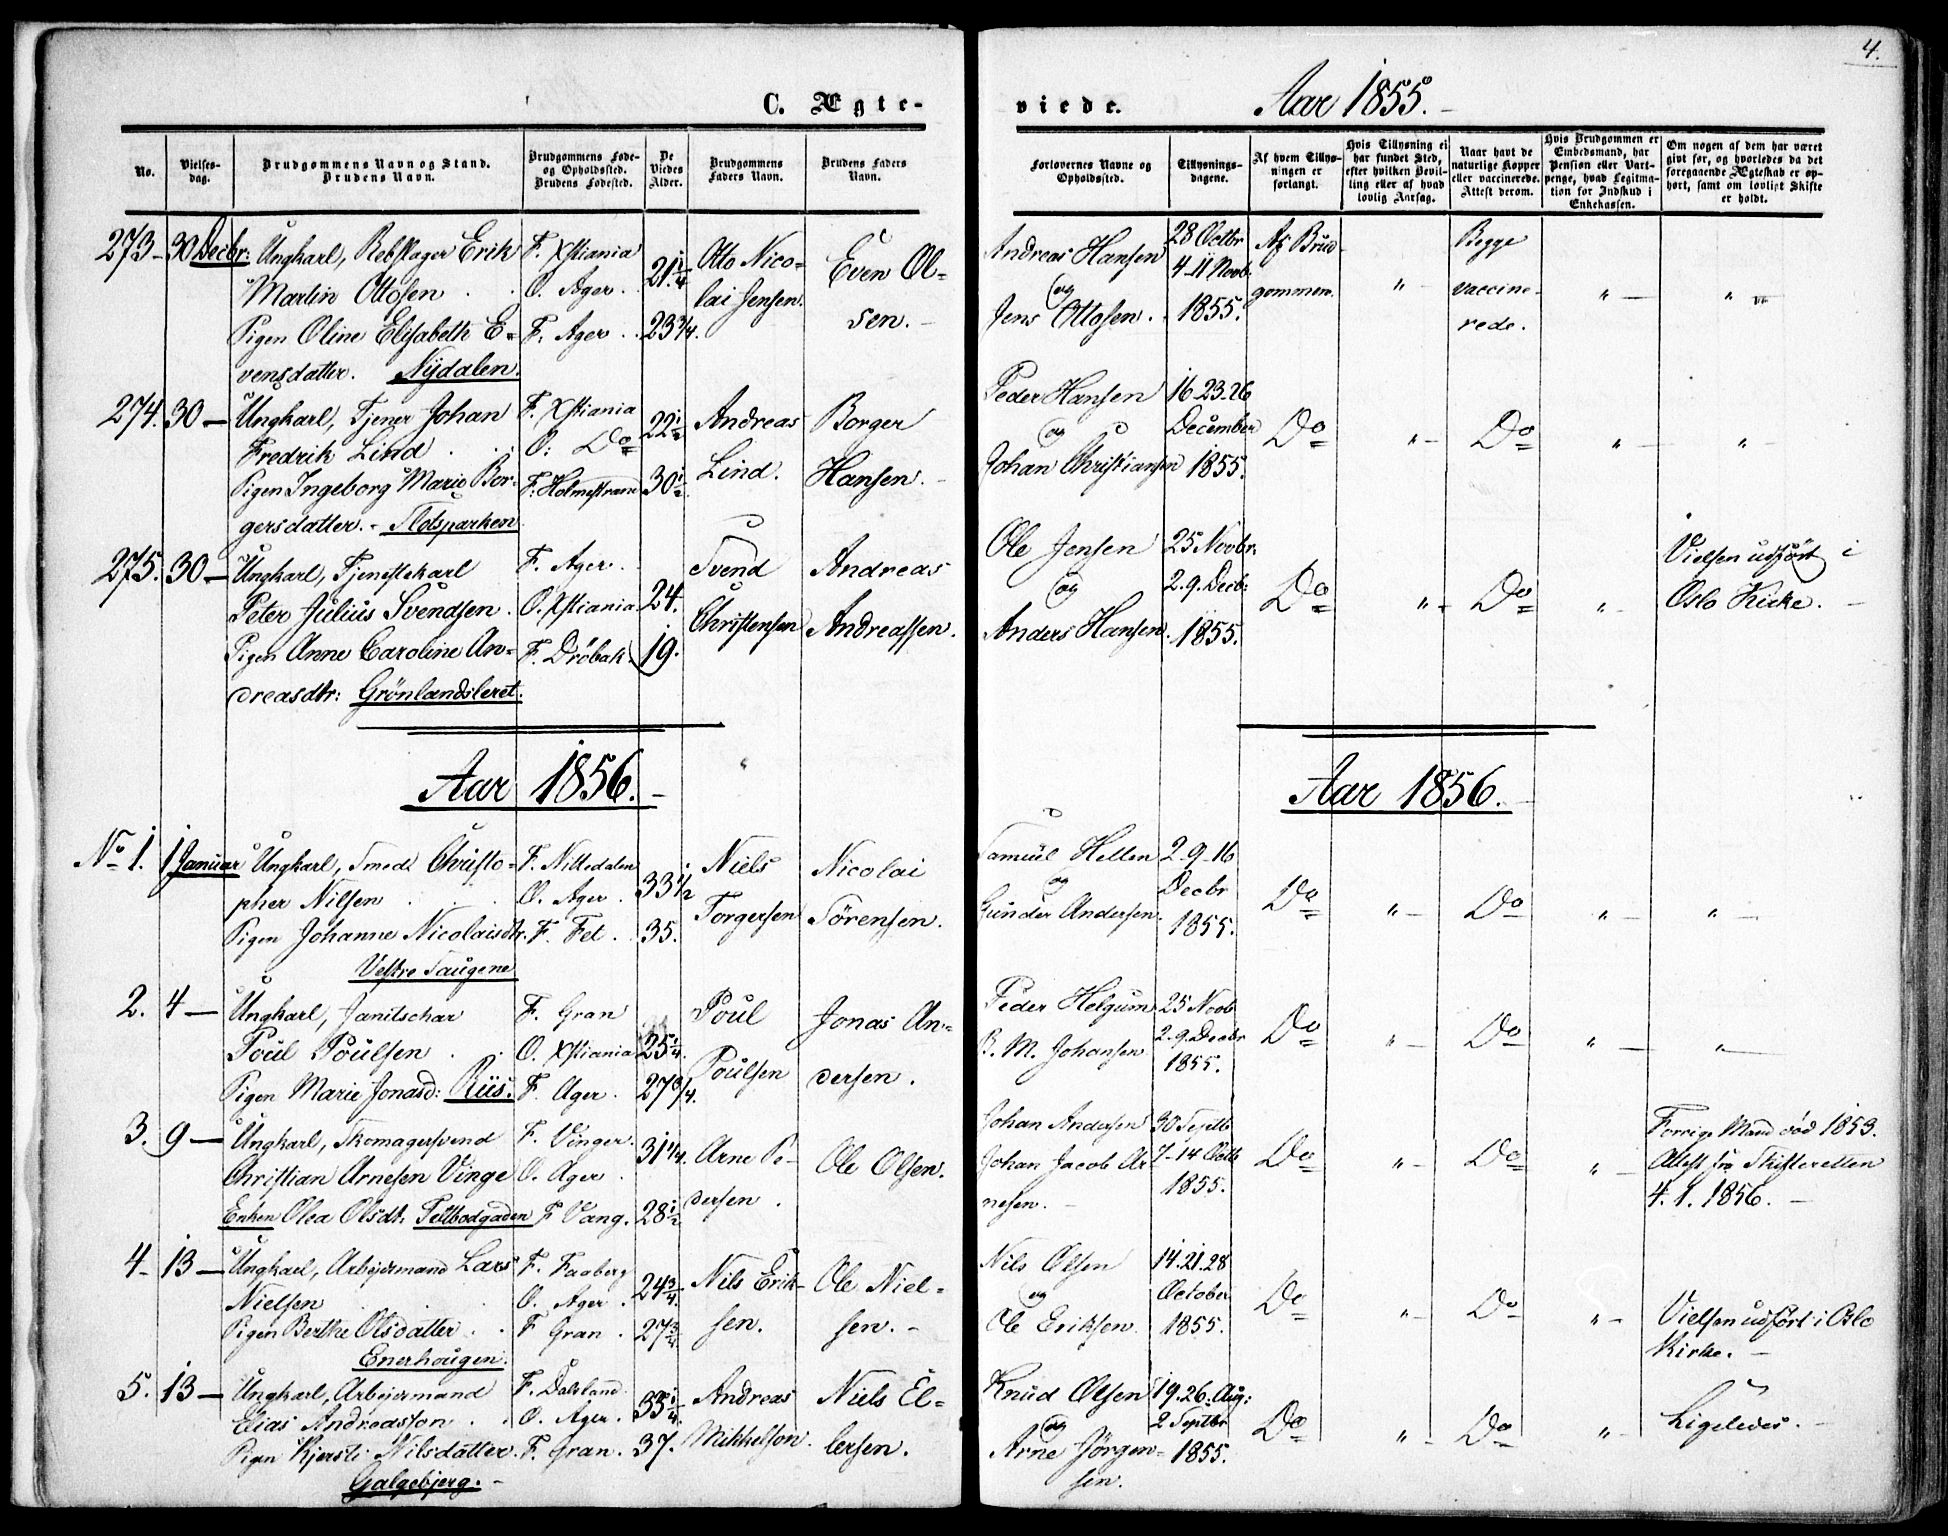 4.
C. Ægte-
viede.
Aar 1855.
No.
Vielses-
dag.
Brudgommens Navn og Stand.
Brudens Navn.
Brudgommens Føde-
og Opholdssted.
Brudens Fødested.
De
Viedes
Alder.
Brudgommens
Faders Navn.
Brudens Faders
Navn.
Forlovernes Navne og
Opholdssted.
Tillysnings-
dagene.
Af hvem Tillys-
ningen er
forlangt.
Hvis Tillysning ei
har fundet Sted,
efter hvilken Bevil-
ling eller af hvad
lovlig Aarsag.
Naar havt de
naturlige Kopper
eller vaccinerede.
Attest derom.
Hvis Brudgommen er
Embedsmand, har
Pension eller Vart-
penge, hvad Legitima-
tion for Indskud i
Enkekassen.
Om nogen af dem har været
gift før, og hvorledes da det
foregaaende Ægteskab er op-
hørt, samt om lovligt Skifte
er holdt.
273. 30 Decbr:
Ungkarl, Rebslager Erik
Martin Ottosen
Pigen Oline Elisabeth E-
vensdatter. Nÿdalen.
F. Xstiania
O. Ager.
F. Ager
21 1/4
23 3/4.
Otto Nico-
lai Jensen.
Even Ol-
sen.
Andreas Hansen
og
Jens Ottosen.
28 Octbr
4-11 Novb.
1855.
Af Brud-
gommen.
"
Begge
vaccine-
rede.
"
"
274. 30 —
Ungkarl, Tjener Johan
Fredrik Lind
Pigen Ingeborg Marie Bor-
gersdatter. - Slotsparken
F. Xstiania
O: Do
F. Holmestrand
22 1/2
30 1/2
Andreas
Lind.
Borger
Hansen.
Peder Hansen
og
Johan Christiansen
16-23-26
December
1855.
Do
"
Do
"
"
275. 30 —
Ungkarl, Tjenestekarl
Peter Julius Svendsen.
Pigen Anne Caroline An-
dreasdtr: Grönlandsleret.
F. Ager.
O. Xstiania
F. Dröbak.
24.
19.
Svend
Christensen
Andreas
Andreassen.
Ole Jensen
og
Anders Hansen.
25 Novbr.
2.9. Decb:
1855.
Do
"
Do
"
Vielsen udført i
Oslo Kirke.
Aar 1856.
Aar 1856.
No 1. 1 Januar
Ungkarl, Smed Christo-
pher Nilsen
Pigen Johanne Nicolaisdtr.
Vestre Saugene
F. Nittedalen
O. Ager.
F. Fet.
33 1/2
35.
Niels
Torgersen
Nicolai
Sörensen.
Samuel Hellen
og
Gunder Andersen.
2-9-16
Decbr
1855.
Do
"
Do
"
"
2. 4 —
Ungkarl, Janitschar
Poul Poulsen
Pigen Marie Jonasd: Riis.
F. Gran
O. Xstiania
F. Ager.
25 1/4.
27 3/4.
Poul
Poulsen
Jonas An-
dersen.
Peder Helgum
B. M. Johansen
25 Novb
2.9. Decbr
1855.
Do
"
Do
"
"
3. 9 —
Ungkarl, Skomagersvend
Christian Arnesen Vinge
Enken Olea Olsdt. Feltbodgaden
F. Vinger.
O. Ager
F Vang.
31 1/4.
28 1/2
Arne Pe-
dersen.
Ole Olsen.
Johan Andersen
Johan Jacob Ar-
nesen.
30 Septb
7-14 Octb
1855.
Do
"
Do
"
Forrige Mand död 1853.
Attest fra Skifteretten
4. 1. 1856.
4 - 13 —
Ungkarl, Arbejdermand Lars
Nielsen
Pigen Berthe Olsdatter
Enerhougen.
F. Faaberg
O. Ager.
F Gran.
24 3/4.
27 3/4
Nils Erik-
sen.
Ole Niel-
sen.
Nils Olsen
og
Ole Eriksen.
14.21.28
October
1855.
Do
"
Do
"
Vielsen udført i Oslo
Kirke.
5. 13 —
Ungkarl, Arbejdermand
Elias Andreassen
Pigen Kjersti Nilsdatter.
Galgebjerg.
F. Dalsland
O. Ager.
F. Gran.
35 1/4.
37.
Andreas
Mikkelsen.
Niels El-
lersen.
Knud Olsen
og
Arne Jörgen-
sen.
19.26. Aug:
2 Septbr
1855.
Do
"
Do
"
Ligeledes.